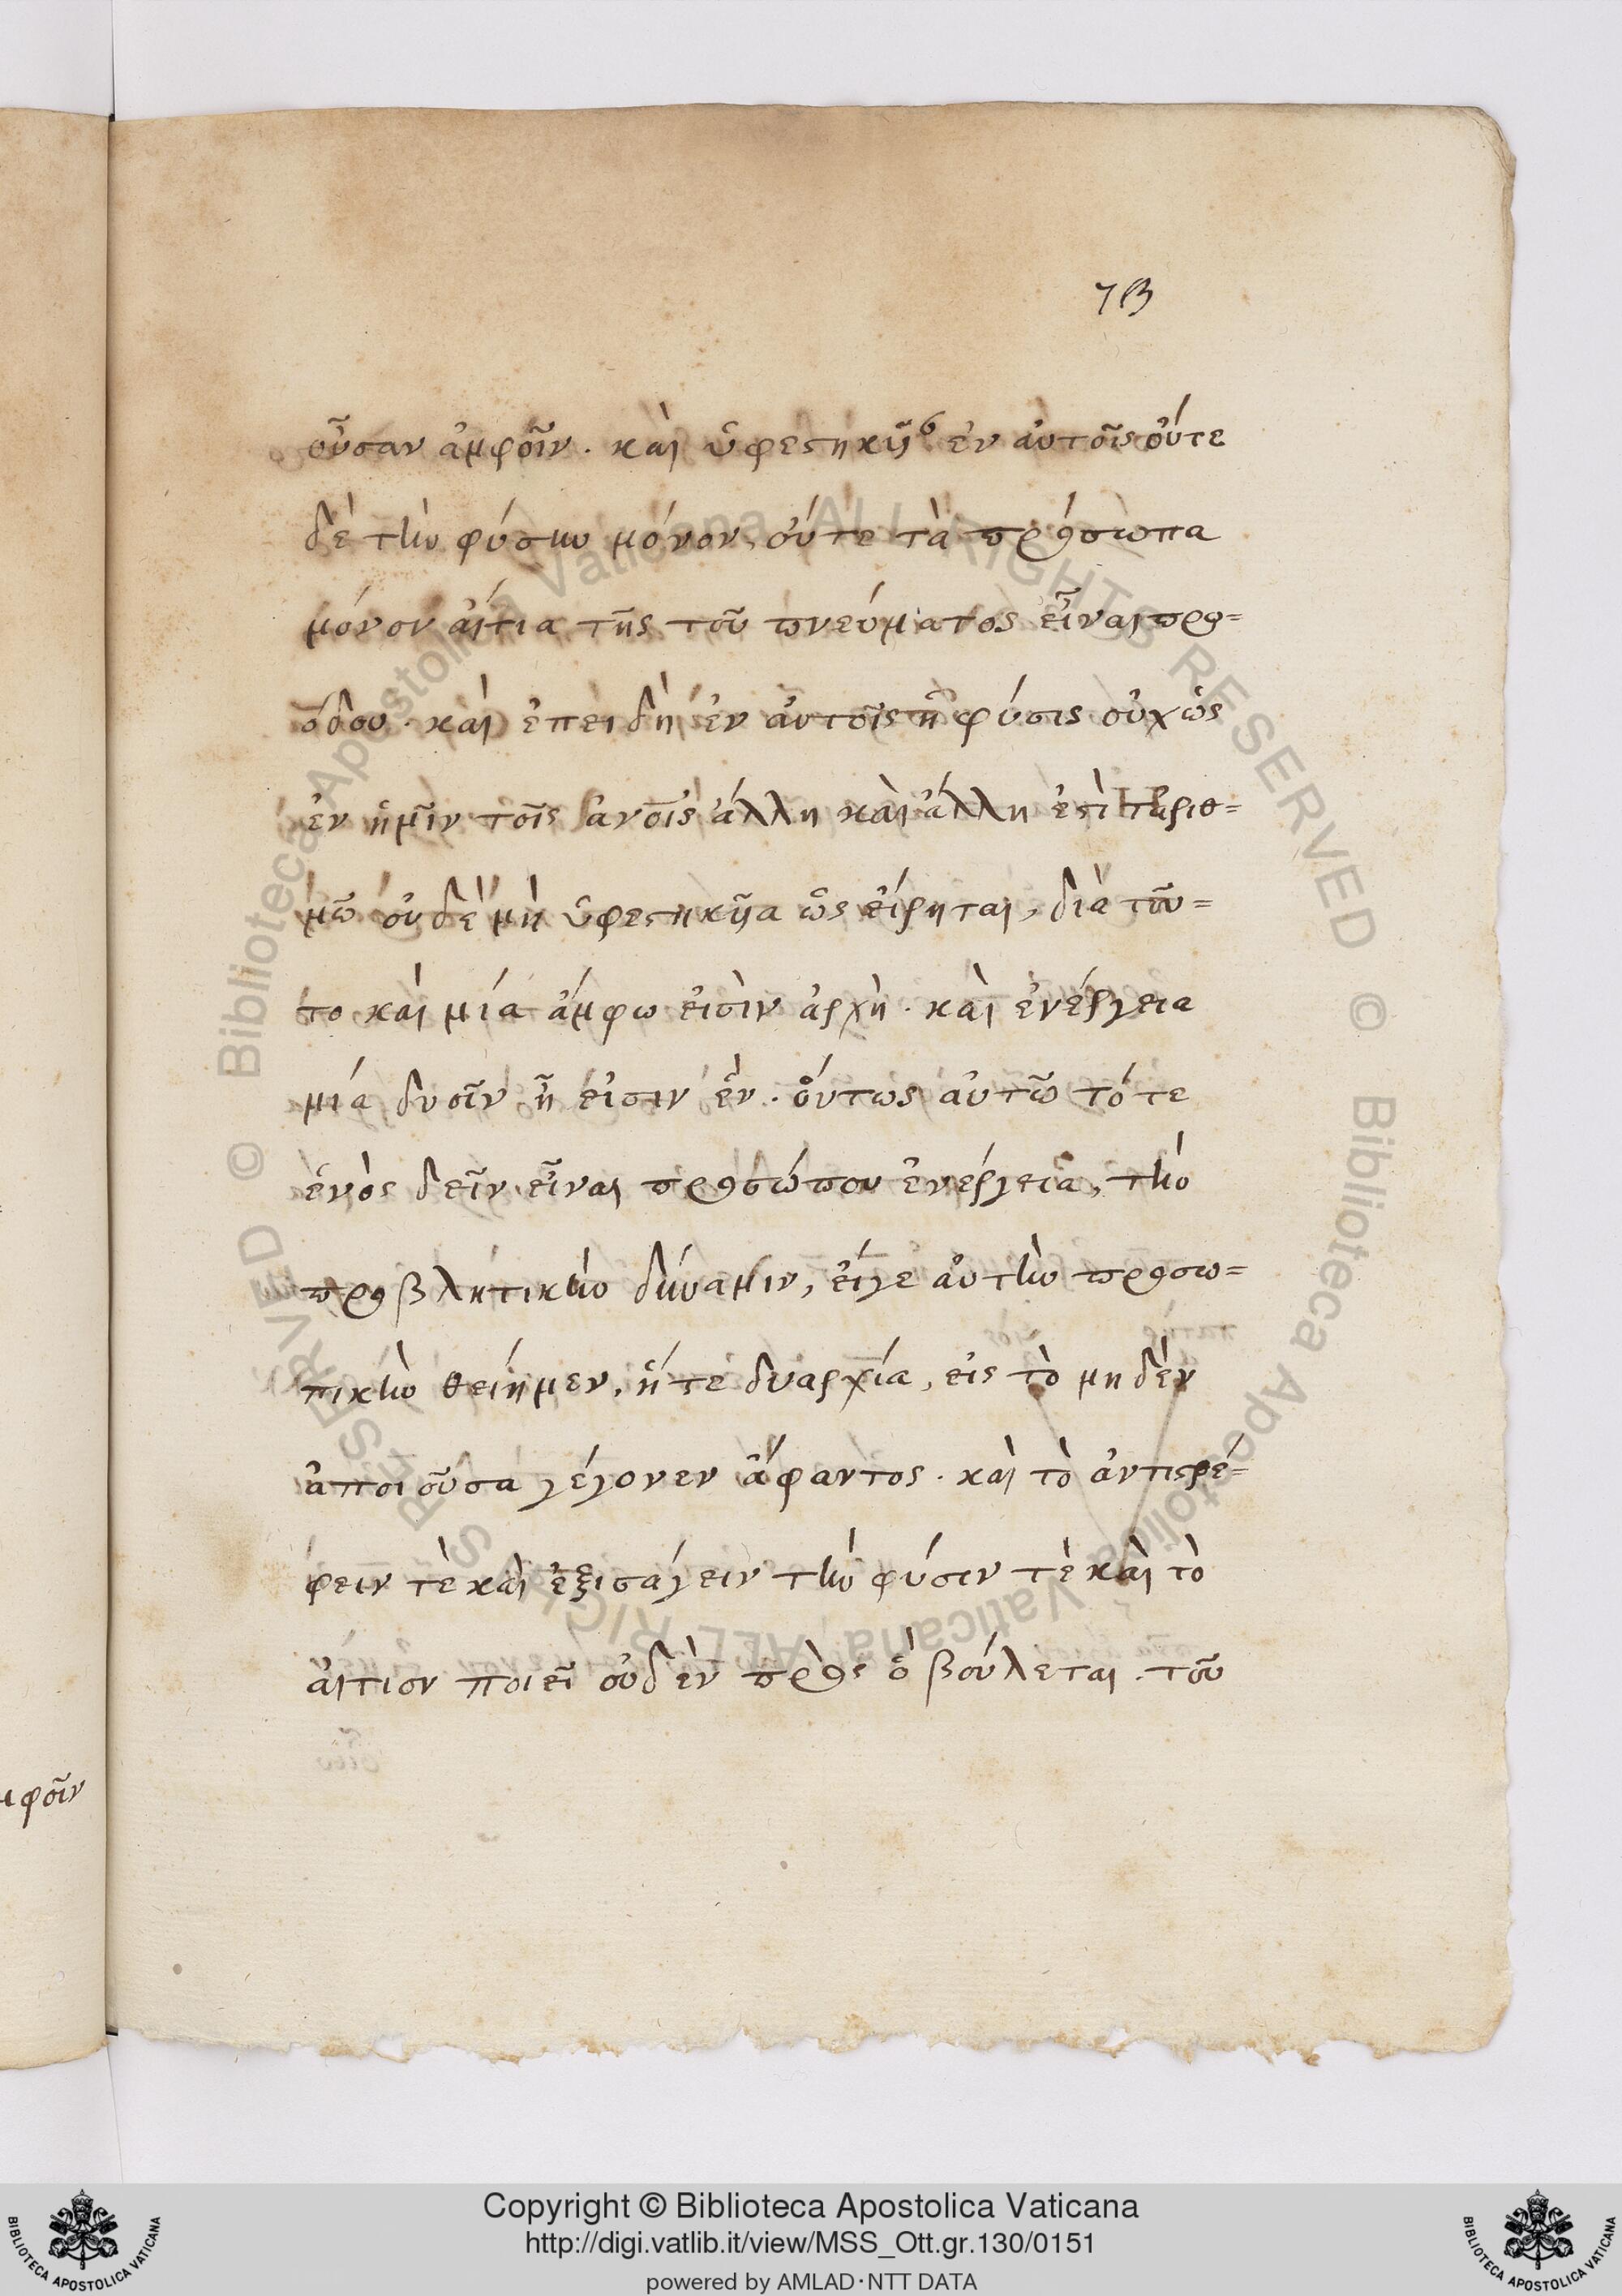 73
οὖσαν ἀμφοῖν. καὶ ὑφεστηκῦαν ἐν αὐτοῖς οὔτε
δὲ τὴν φύσιν μόνον, οὔτε τὰ πρόσωπα
μόνον αἴτια τῆς τοῦ πνεύματος εἶναι προ=
όδου. καὶ ἐπειδὴ ἐν αὐτοῖς ἡ φύσις οὐχ ὡς
ἐν ἡμῖν τοῖς ἀνοις ἄλλη καὶ ἄλλη ἐστὶ τῷ ἀριθ=
μῶ οὐδὲ μὴ ὑφεστηκῦα ὡς εἴρηται, διὰ τοῦ=
το καὶ μία ἄμφω εἰσὶν ἀρχὴ. καὶ ἐνέργεια
μία δυοῖν ἧ εἰσιν ἓν. οὕτως αὐτῶ τότε
ἑνὸς δεῖν εἶναι προσώπου ἐνέργεια, τὴν
προβλητικὴν δύναμιν, εἴγε αὐτὴν προσω=
πικὴν θείημεν, ἥτε δυαρχία, εἰς τὸ μηδὲν
ἀποιοῦσα γέγονεν ἄφαντος. καὶ τὸ ἀντιστρέ=
φειν τὲ καὶ ἐξισάγειν τὴν φύσιν τὲ καὶ τὸ
αἴτιον ποιεῖ οὐδὲν πρὸς ὃ βούλεται. τοῦ
μφοῖν
© Biblioteca Apostolica Vaticana ALL RIGHTS RESERVED © Biblioteca Apostolica Vaticana ALL RIGHTS RESERVED
BIBLIOTECA APOSTOLICA VATICANA
Copyright © Biblioteca Apostolica Vaticana
http://digi.vatlib.it/view/MSS_Ott.gr.130/0151
powered by AMLAD·NTT DATA
BIBLIOTECA APOSTOLICA VATICANA